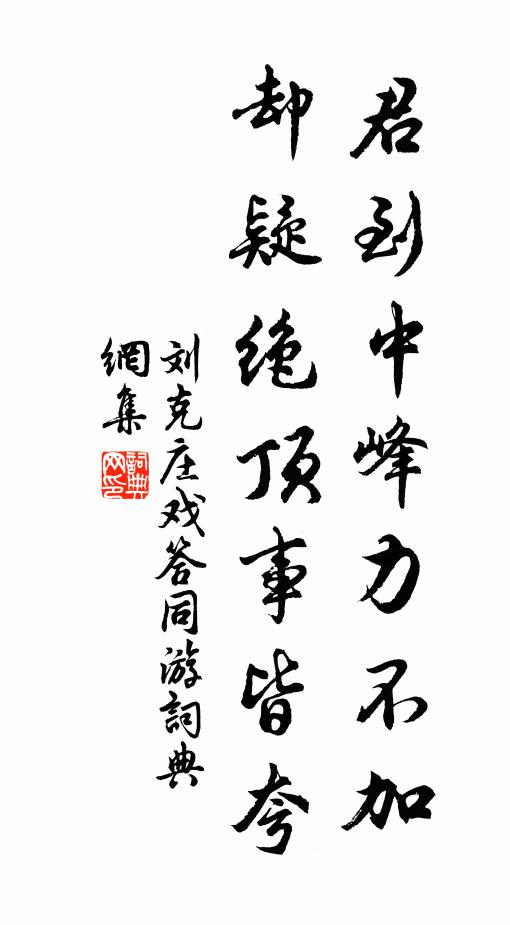 君到中峰力不加
却疑绝顶事皆夸
刘克庄戏答同游詞典
網集
詞典网印